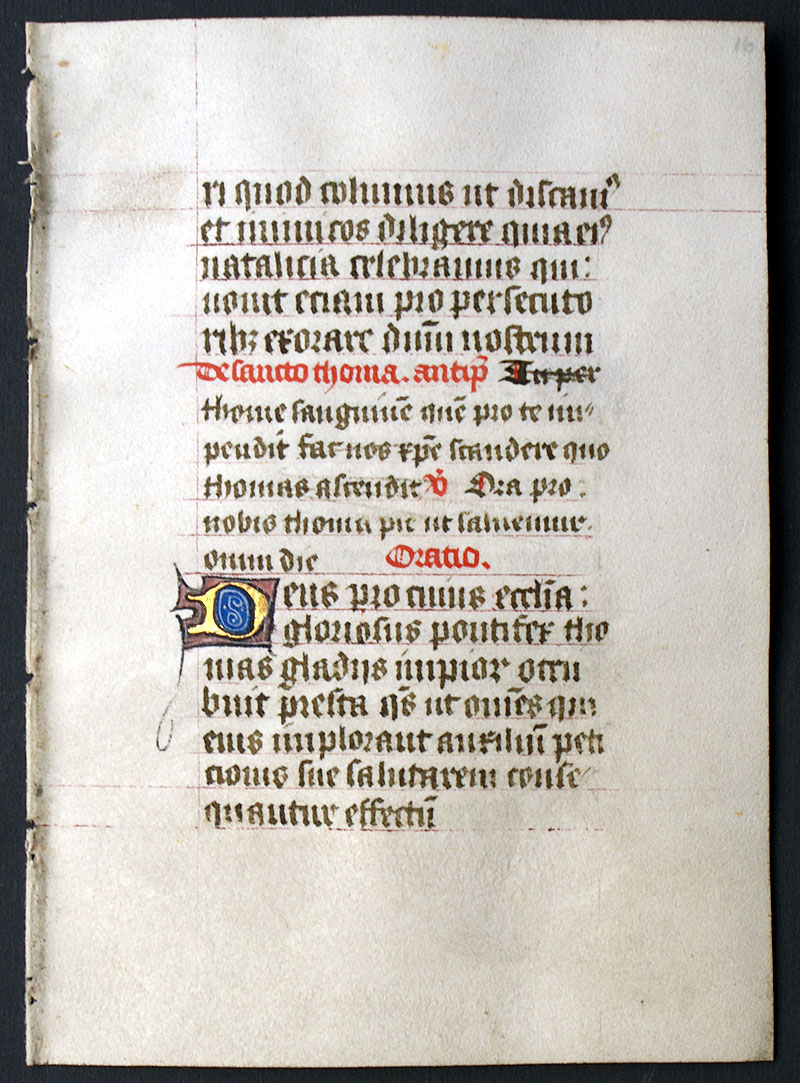 16
ri quod colimus ut discam⁹
et inimicos diligere quia ei⁹
natalicia celebramus qui:
nouit eciam pro persecuto
ribꝫ exorare dūm nostrum
De sancto thoma. antip̄ Tu per
thome sanguinē quē pro te im⸗
pendit fac nos xp̄e scandere quo
thomas ascendit v̄ Ora pro:
nobis thoma pie ut saluemur.
omni die Oratio.
Deus pro cuius eccl̄ia:
gloriosus pontifex tho
mas gladijs impior occu
buit presta q̄s ut omēs qui
eius implorant auxiliū peti
cionis sue salutarem conse⸗
quantur effectū